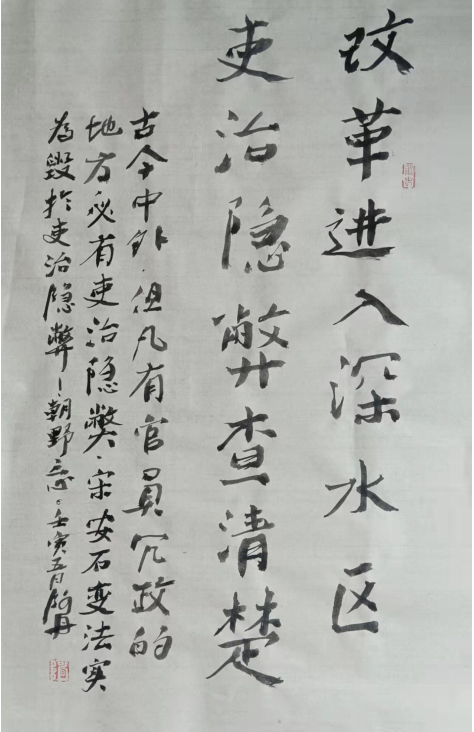 改革进入深水区
吏治隐弊查清楚
古今中外·但凡有官员冗政的
地方必有吏治隐弊·宋安石变法实
为毁於吏治隐弊·朝野忌·壬寅五月